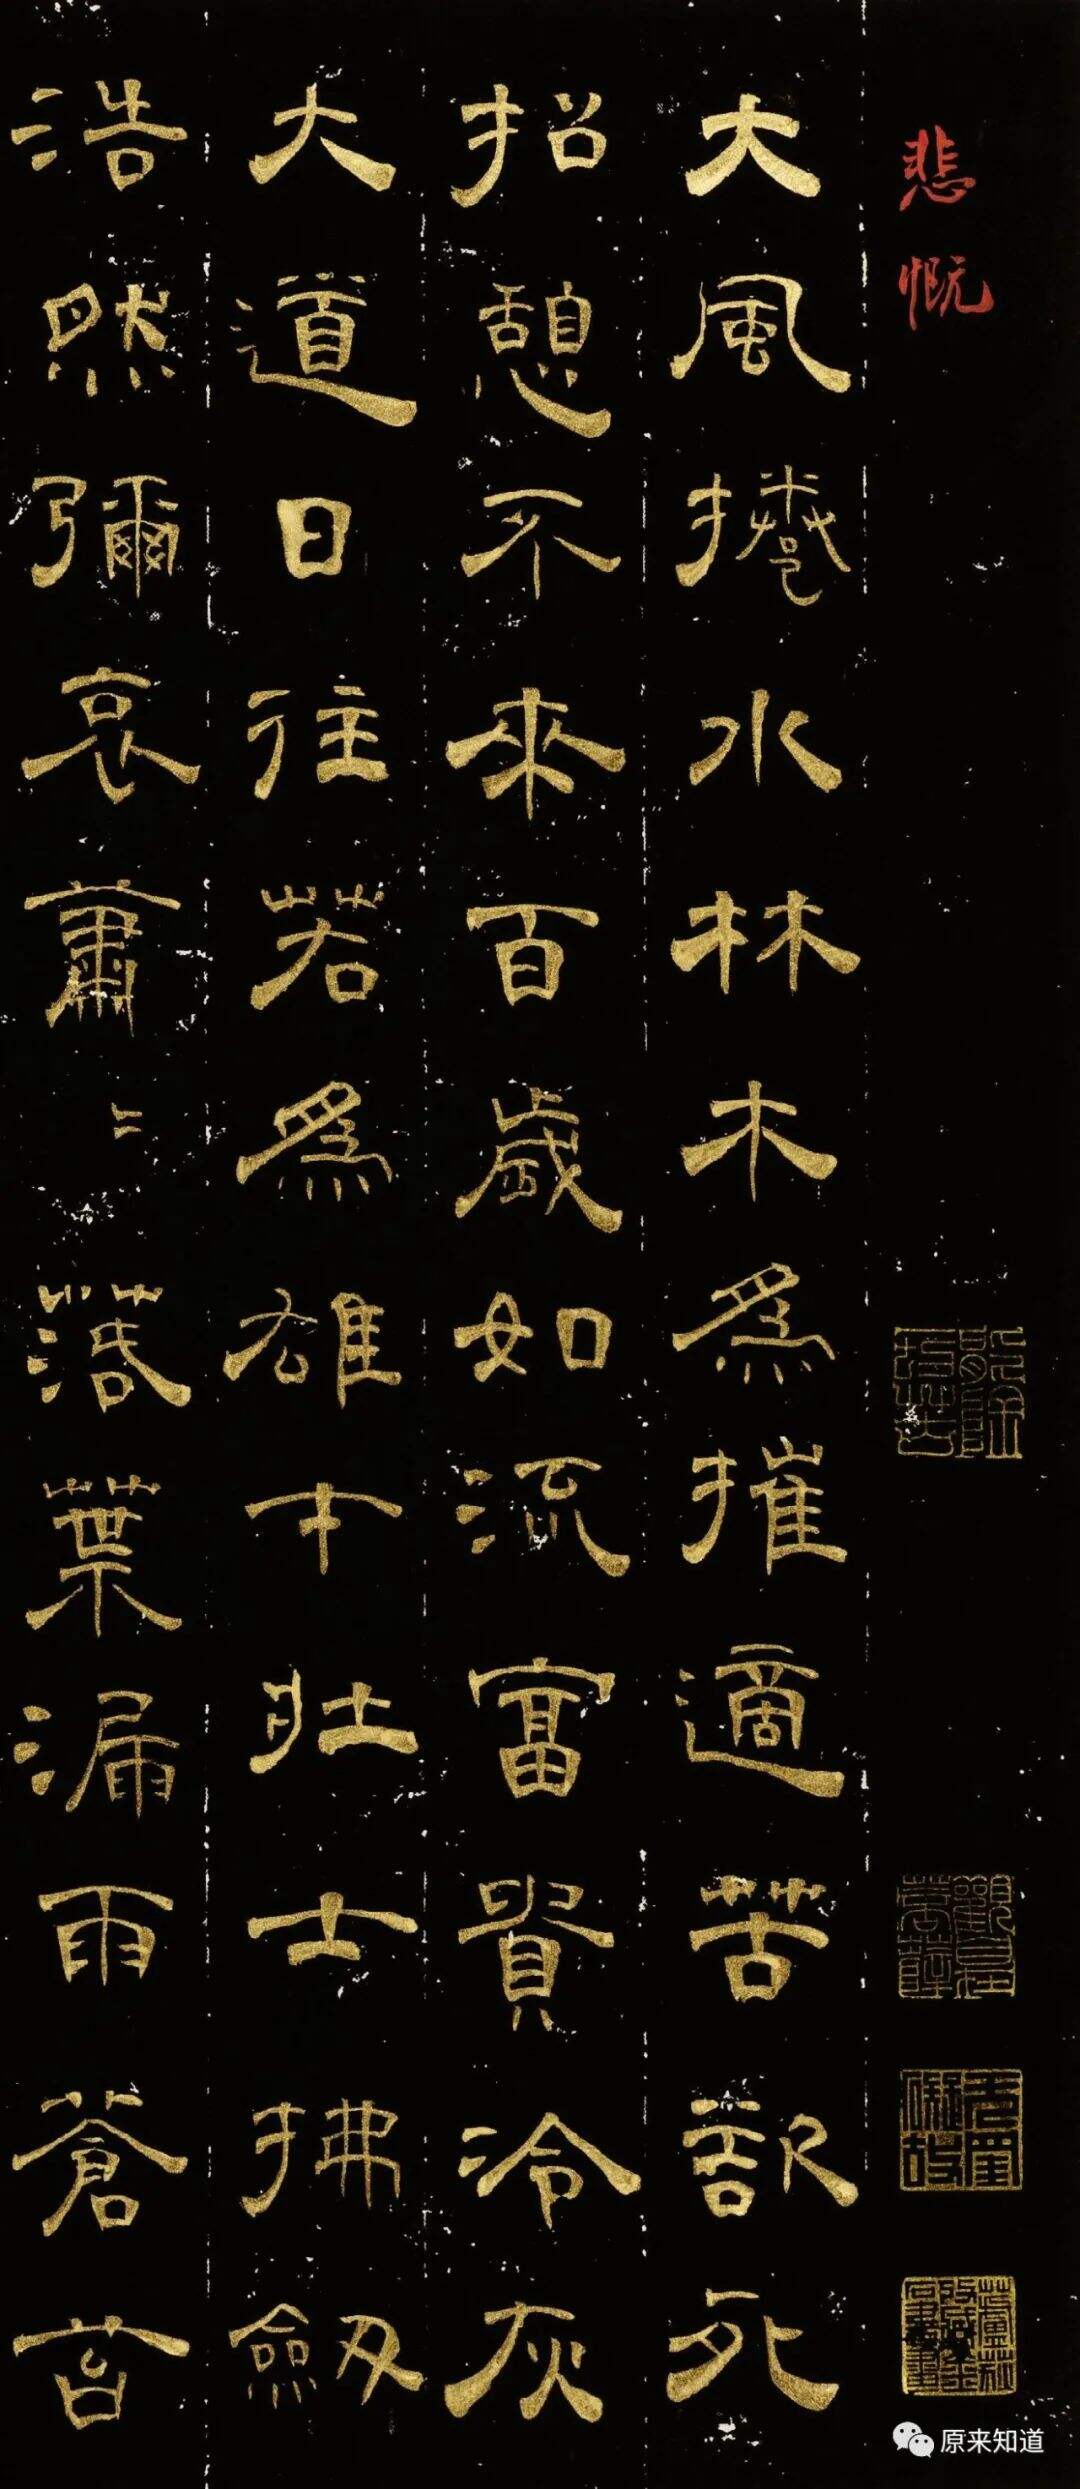 悲慨
大風捲水林木爲摧適苦欲死
招憩不來百歲如流富貴冷灰
大道日往若爲雄才壯士拂劒
浩然彌哀蕭〻落葉漏雨蒼苔
原来知道